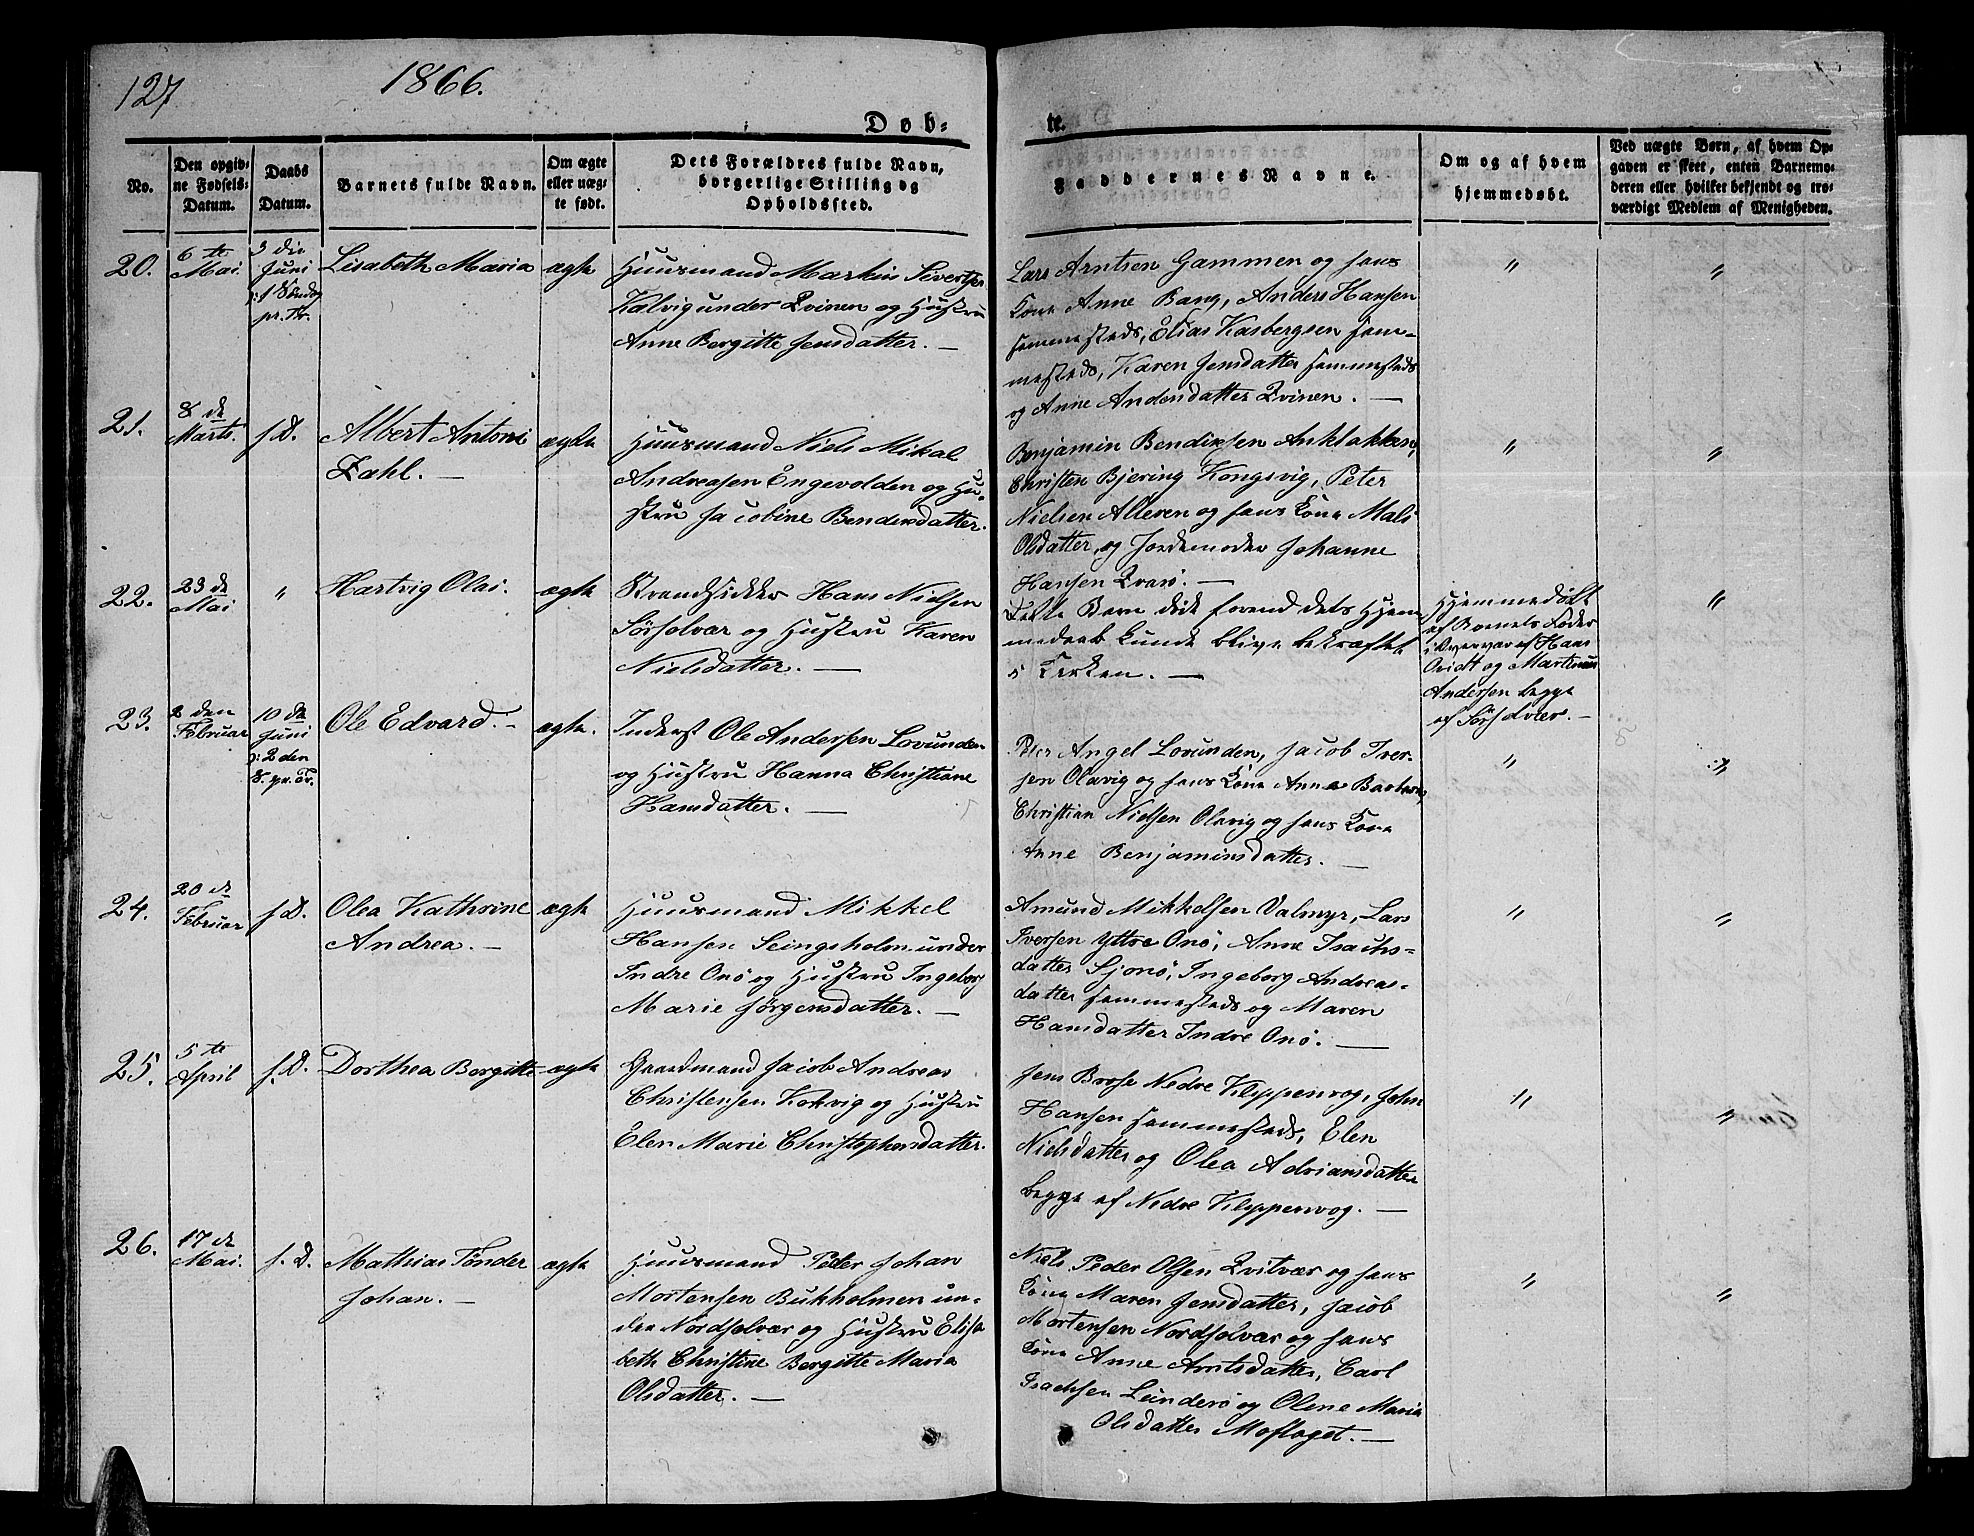 127
1866.
Døb-
te.
No.
Den opgiv-
ne Fødsels-
Datum.
Daabs
Datum.
Barnets fulde Navn.
Om ægte
eller uæg-
te født.
Dets Forældres fulde Navn,
borgerlige Stilling og
Opholdssted.
Faddernes Navne.
Om og af hvem
hjemmedøbt.
Ved uægte Børn, af hvem Op-
gaven er skeet, enten Barnemo-
deren eller hvilket bekjendt og tro-
værdigt Medlem af Menigheden.
20.
6te
Mai.
3die
Juni
1 Søndag
p. Tr.
Lisabeth Maria
ægte
Huusmand Martin Sivertsen
Kalvig under Qvinen og Hustru
Anne Bergitte Jensdatter. —
Lars Arntsen Gammen og hans
Kone Anne Bang, Anders Hansen
sammesteds, Elias Kasbergsen sam-
mesteds, Karen Jensdatter sammesteds
og Anne Andersdatter Qvinen. —
"
"
21.
8de
Marts.
s. D.
Albert Antoni
Zahl. —
ægte
Huusmand Niels Mikal
Andreasen Engevolden og Hu-
stru Jacobine Bendiksdatter.
Benjamin Bendiksen Anklakken,
Christen Bjering Kongsvig, Peter
Nielsen Alteren og hans Kone Mali
Olsdatter, og Jordemoder Johanne
Hansen Qvarø. —
"
"
22.
23de
Mai
"
Hartvig Olai.
ægte
Strandsidder Hans Nielsen
Sørsolvær og Hustru Karen
Nielsdatter. —
Dette Barn døde forend dets Hjem-
medaab kunde blive bekræftet
i Kirken. —
Hjemmedøbt
af Barnets Fader
i Overvær af Hans
Qvidt og
Andersen begge
af Sørsolvær. —
"
23.
2den
Februar
10de
Juni
2den
S. p. Tr.
Ole Edvard. —
ægte.
Inderst Ole Andersen Lovunden
og Hustru Hanna Christiane
Hansdatter. —
Peter Angel Lovunden, Jacob Iver-
sen Olavig og hans Kone Anne
Christian Nielsen Olavig og hans Kone
Anne Benjaminsdatter. —
"
"
24.
20de
Februar
s. D.
Olea Kathrine
Andrea. —
ægte
Huusmand Mikkel
Hansen Seingsholm under
Indre Onø og Hustru Ingeborg
Marie Jørgensdatter. —
Amund Mikkelsen Valmyr, Lars
Iversen Yttre Onø, Anne Isachs-
datter Sjonø, Ingeborg Andreas-
datter sammesteds og Maren
Hansdatter Indre Onø. —
"
"
25.
5te
April
s. D.
Dorthea Bergitte
ægte
Gaardmand Jacob Andreas
Christensen Kokvig og Hustru
Elen Marie Christophersdatter.
Jens Brose Nedre Klippenvog, John
Hansen sammesteds, Elen
Nielsdatter og Olea Adriansdatter
begge af Nedre Klippenvog. —
"
"
26.
17de
Mai.
s. D.
Mathias Tønder
Johan. —
ægte
Huusmand Peter Johan
Mortensen Bukholmen un-
der Nordsolvær og Hustru Elisa
beth Christine Bergitte Maria
Olsdatter. —
Niels Peder Olsen Qvitvær og hans
Kone Maren Jensdatter, Jacob
Mortensen Nordsolvær og hans
Kone Anne Arntsdatter, Carl
Isachsen Lunderø og Olene Maria
Olsdatter Moflaget. —
"
"